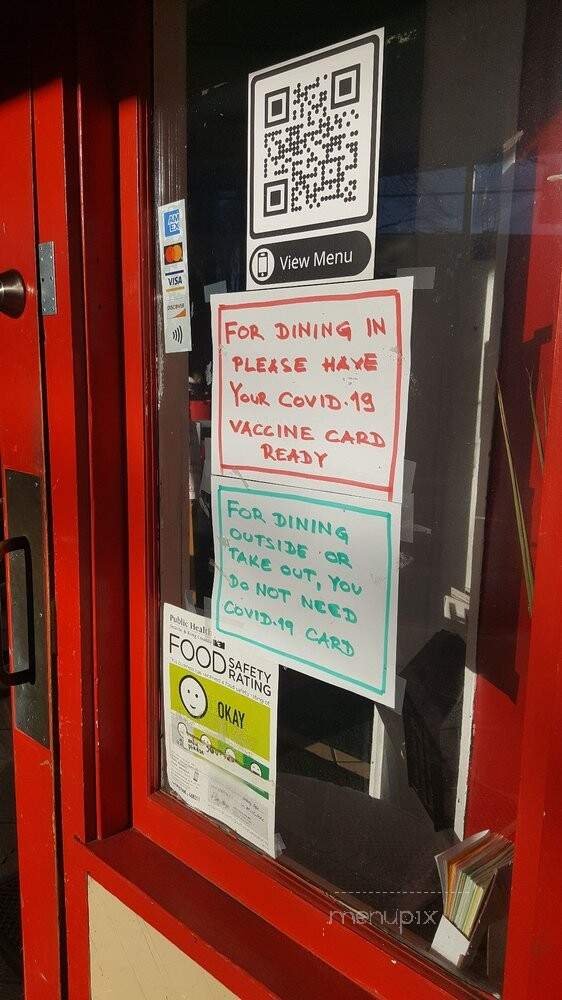 View Menu
AM
EX
VISA
DISCOVER
FOR DINING IN
PLEASE HAVE
YOUR COVID-19
VACCINE CARD
READY
FOR DINING
OUTSIDE OR
TAKE OUT, YOU
DO NOT NEED
COVID-19 CARD
Public Health
FOOD SAFETY
RATING
OKAY
menupix